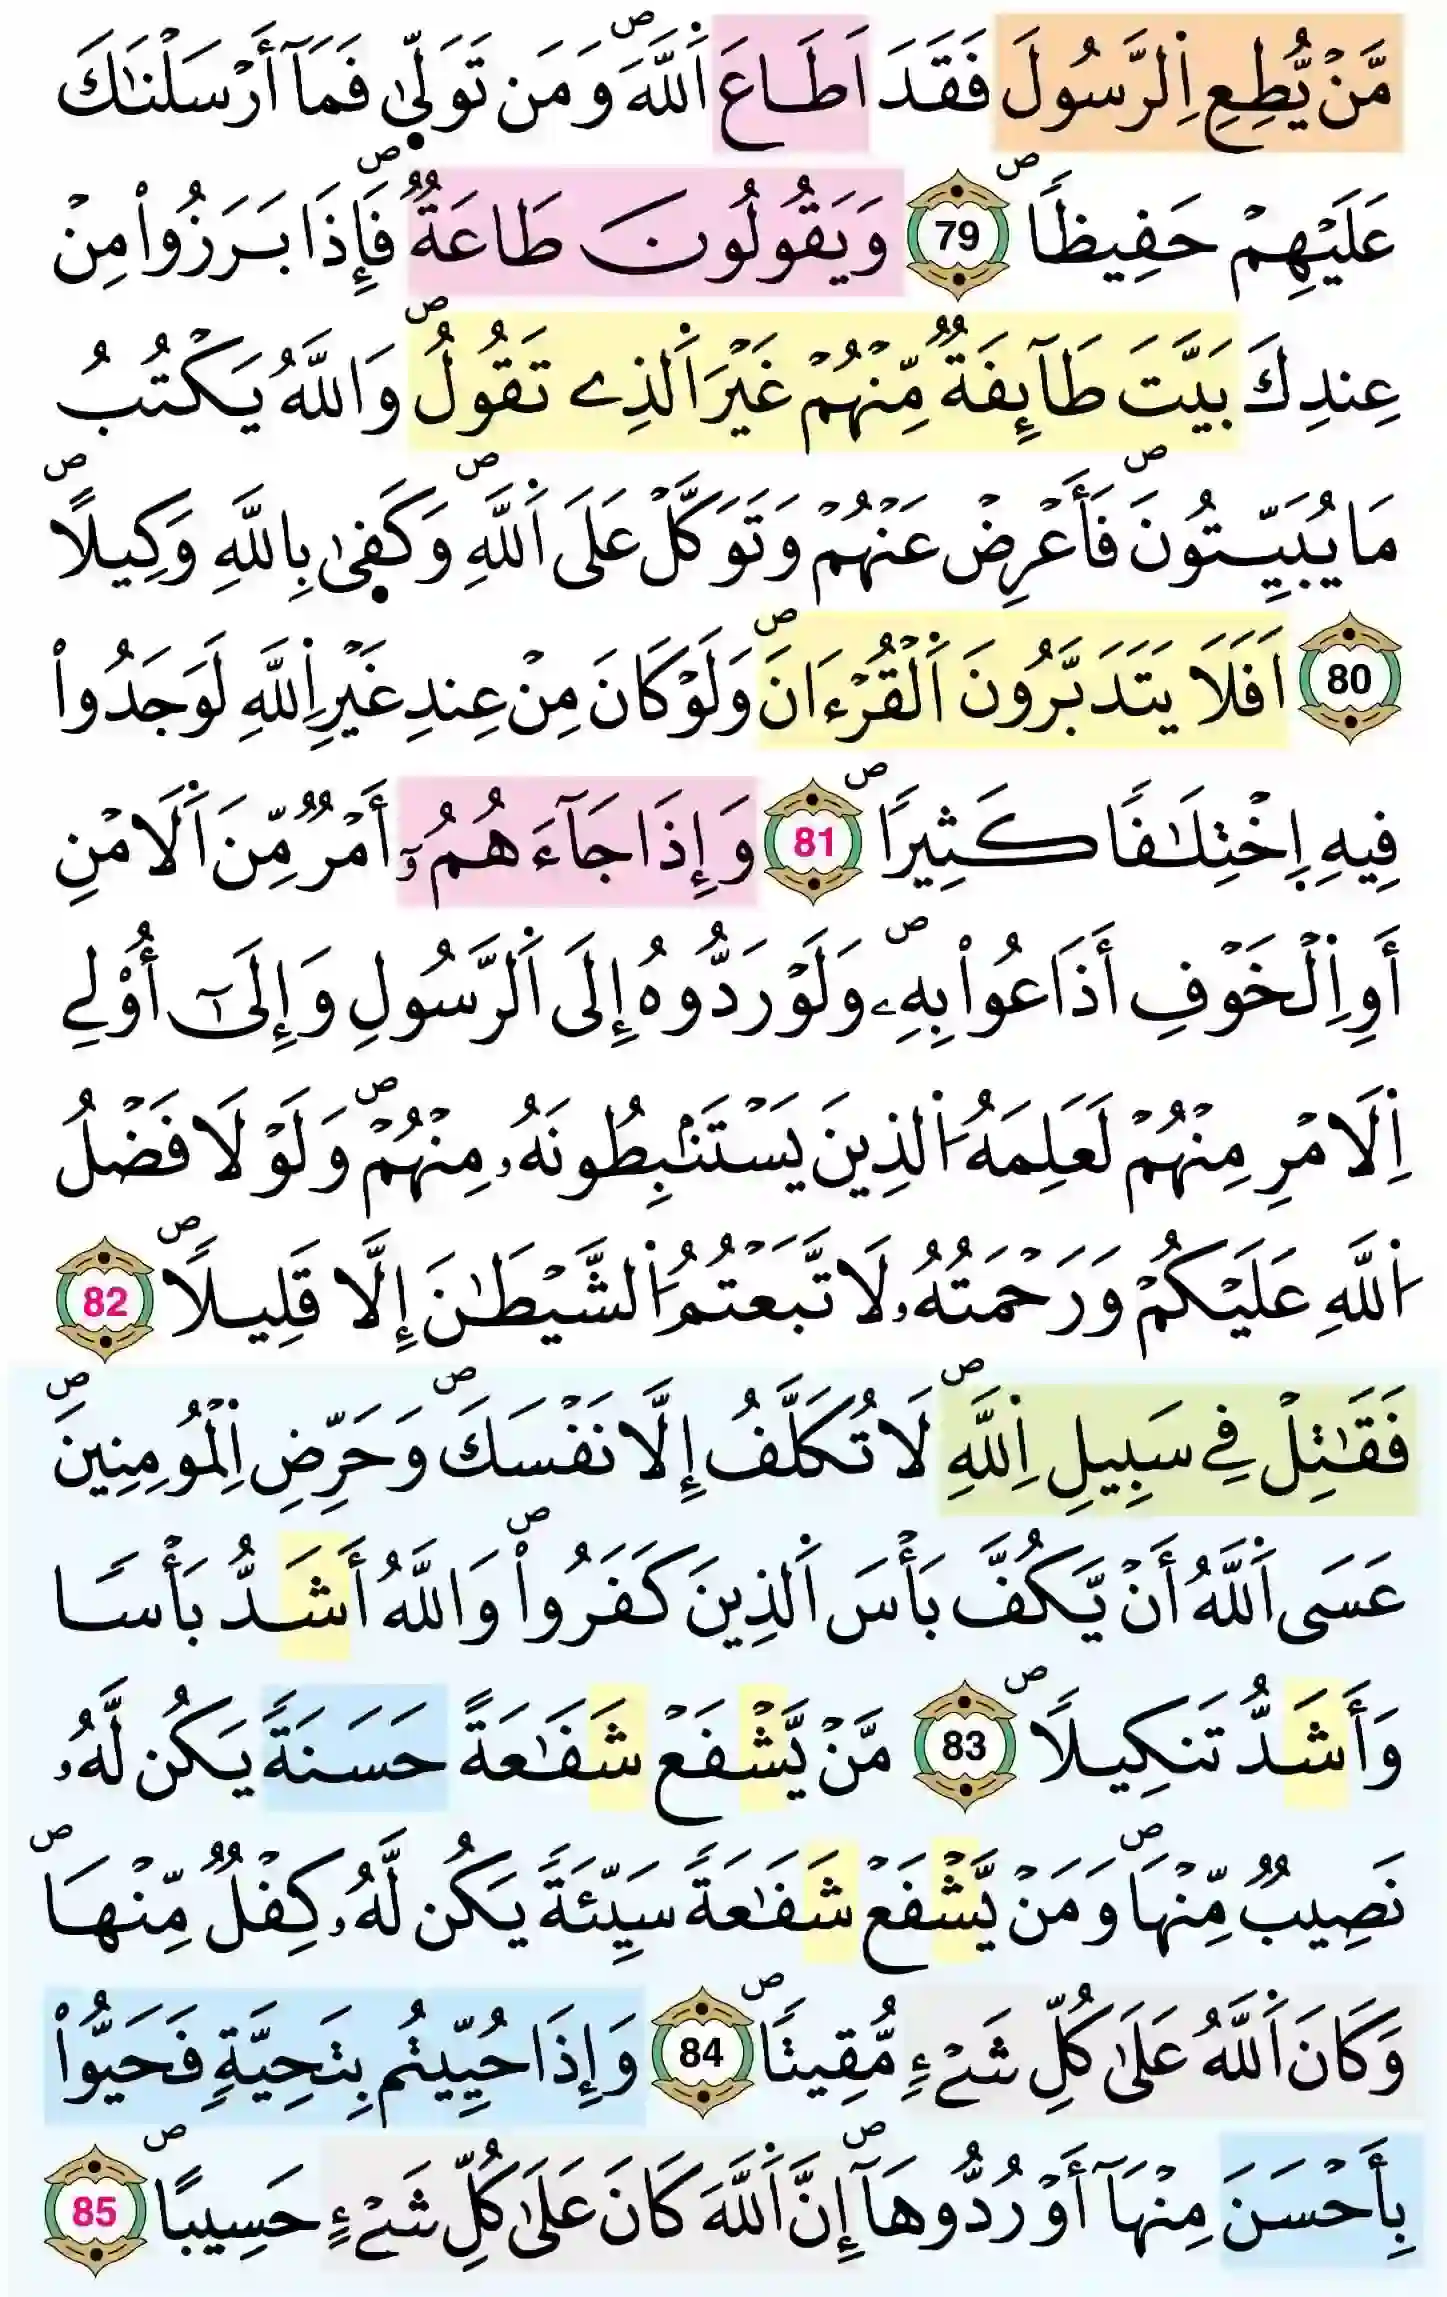 مَّنْ يُّطِعِ اِ۬لرَّسُولَ فَقَدَ اَطَاعَ اَ۬للَّهَۖ وَمَن تَوَلّ۪ىٰ فَمَآ أَرْسَلْنَٰكَ
عَلَيْهِمْ حَفِيظاٗۖ 79 وَيَقُولُونَ طَاعَةٞۖ فَإِذَا بَرَزُواْ مِنْ
عِندِكَ بَيَّتَ طَآئِفَةٞ مِّنْهُمْ غَيْرَ اَ۬لذِے تَقُولُۖ وَاللَّهُ يَكْتُبُ
مَا يُبَيِّتُونَۖ فَأَعْرِضْ عَنْهُمْ وَتَوَكَّلْ عَلَى اَ۬للَّهِۖ وَكَف۪ىٰ بِاللَّهِ وَكِيلاًۖ
80 اَفَلَا يَتَدَبَّرُونَ اَ۬لْقُرْءَانَۖ وَلَوْ كَانَ مِنْ عِندِ غَيْرِ اِ۬للَّهِ لَوَجَدُواْ
فِيهِ اِ۪خْتِلَٰفاٗ كَثِيراٗۖ 81 وَإِذَا جَآءَهُمُۥٓ أَمْرٞ مِّنَ اَ۬لَامْنِ
أَوِ اِ۬لْخَوْفِ أَذَاعُواْ بِهِۦۖ وَلَوْ رَدُّوهُ إِلَى اَ۬لرَّسُولِ وَإِلَىٰٓ أُوْلِے
اِ۬لَامْرِ مِنْهُمْ لَعَلِمَهُ اُ۬لذِينَ يَسْتَنۢبِطُونَهُۥ مِنْهُمْۖ وَلَوْلَا فَضْلُ
اُ۬للَّهِ عَلَيْكُمْ وَرَحْمَتُهُۥ لَاتَّبَعْتُمُ اُ۬لشَّيْطَٰنَ إِلَّا قَلِيلاٗۖ 82
فَقَٰتِلْ فِے سَبِيلِ اِ۬للَّهِۖ لَا تُكَلَّفُ إِلَّا نَفْسَكَۖ وَحَرِّضِ اِ۬لْمُومِنِينَۖ
عَسَى اَ۬للَّهُ أَنْ يَّكُفَّ بَأْسَ اَ۬لذِينَ كَفَرُواْۖ وَاللَّهُ أَشَدُّ بَأْساٗ
وَأَشَدُّ تَنكِيلاٗۖ 83 مَّنْ يَّشْفَعْ شَفَٰعَةً حَسَنَةٗ يَكُن لَّهُۥ
نَصِيبٞ مِّنْهَاۖ وَمَنْ يَّشْفَعْ شَفَٰعَةٗ سَيِّئَةٗ يَكُن لَّهُۥ كِفْلٞ مِّنْهَاۖ
وَكَانَ اَ۬للَّهُ عَلَىٰ كُلِّ شَےْءٖ مُّقِيتاٗۖ 84 وَإِذَا حُيِّيتُم بِتَحِيَّةٖ فَحَيُّواْ
بِأَحْسَنَ مِنْهَآ أَوْ رُدُّوهَآۖ إِنَّ اَ۬للَّهَ كَانَ عَلَىٰ كُلِّ شَےْءٍ حَسِيباًۖ 85